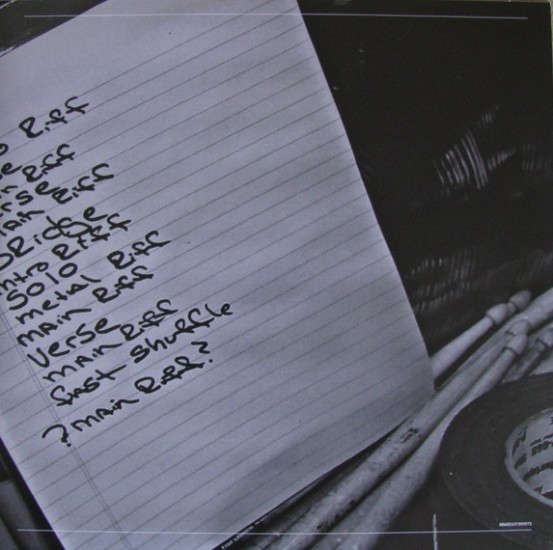 Riff
Riff
verse
main Riff
Bridge
intro Riff
Solo
metal Riff
main Riff
verse
main Riff
fast shuffle
? main Riff?